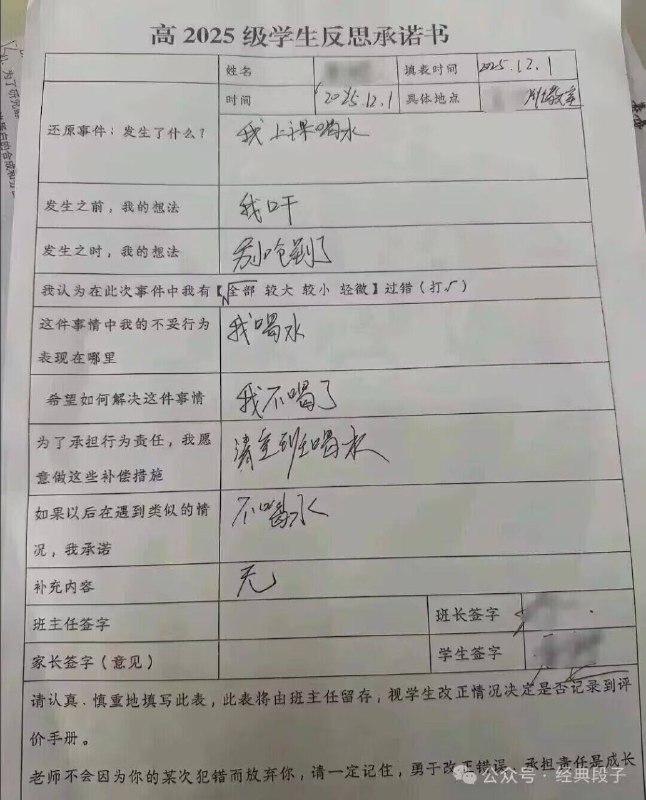 高 2025 级学生反思承诺书
姓名 填表时间 2025.12.1
时间 2025.12.1 具体地点 教室
还原事件：发生了什么？ 我上课喝水
发生之前，我的想法 我口干
发生之时，我的想法 别呛到了
我认为在此次事件中我有【全部 较大 较小 轻微】过错（打√）
这件事情中我的不妥行为 我喝水
表现在哪里
希望如何解决这件事情 我不喝了
为了承担行为责任，我愿 请全班喝水
意做这些补偿措施
如果以后在遇到类似的情 不喝水
况，我承诺
补充内容 无
班主任签字 班长签字
家长签字（意见） 学生签字
请认真、慎重地填写此表，此表将由班主任留存，视学生改正情况决定是否记录到评
价手册。
老师不会因为你的某次犯错而放弃你，请一定记住，勇于改正错误、承担责任是成长
公众号·经典段子